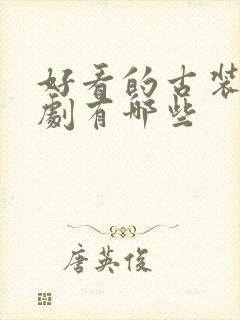 好看的古装
劇有哪些
唐英俊